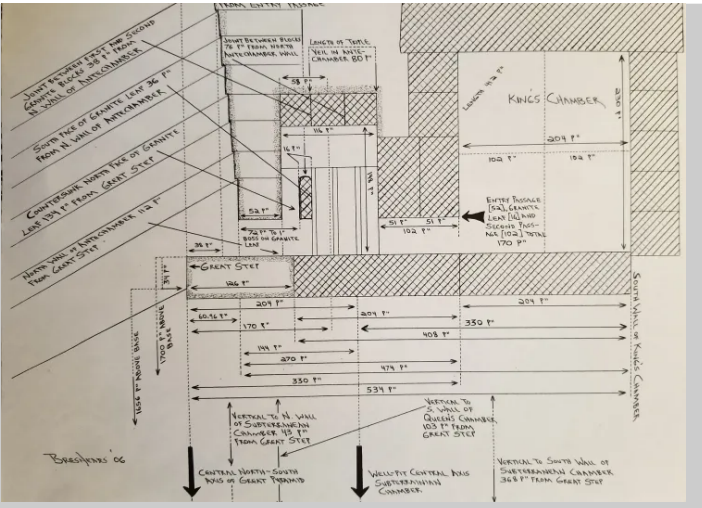 FROM ENTRY PASSAGE
JOINT BETWEEN FIRST AND SECOND
GRANITE BLOCKS 38 P" FROM
N WALL OF ANTECHAMBER
SOUTH FACE OF GRANITE LEAF 36 P"
FROM N. WALL OF ANTECHAMBER
COUNTERSUNK NORTH FACE OF GRANITE
LEAF 134 P" FROM GREAT STEP
NORTH WALL OF ANTECHAMBER 112 P"
FROM GREAT STEP
JOINT BETWEEN BLOCKS
76 P" FROM NORTH
ANTECHAMBER WALL
LENGTH OF TRIPLE
VEIL IN ANTE-
CHAMBER 80 P"
58 P"
116 P"
16 P"
52 P"
72 P" TO 1"
BOSS ON GRANITE
LEAF
51 P" 51 P"
102 P"
LENGTH 412 P"
KING'S CHAMBER
230 P"
204 P"
102 P" 102 P"
ENTRY PASSAGE
[52], GRANITE
LEAF [16] AND
SECOND PASS-
AGE [102] TOTAL
170 P"
38 P"
GREAT STEP
126 P"
34 P"
1700 P" ABOVE
BASE
1656 P" ABOVE BASE
204 P"
204 P"
60.96 P"
204 P"
330 P"
170 P"
408 P"
144 P"
270 P"
474 P"
330 P"
534 P"
SOUTH WALL OF KING'S CHAMBER
VERTICAL TO N. WALL
OF SUBTERRANEAN
CHAMBER 43 P"
FROM GREAT STEP
VERTICAL TO
S. WALL OF
QUEEN'S CHAMBER
103 P" FROM
GREAT STEP
BRESHEARS '06
CENTRAL NORTH-SOUTH
AXIS OF GREAT PYRAMID
WELL-PIT CENTRAL AXIS
SUBTERRAINIAN
CHAMBER
VERTICAL TO SOUTH WALL OF
SUBTERRANEAN CHAMBER
368 P" FROM GREAT STEP